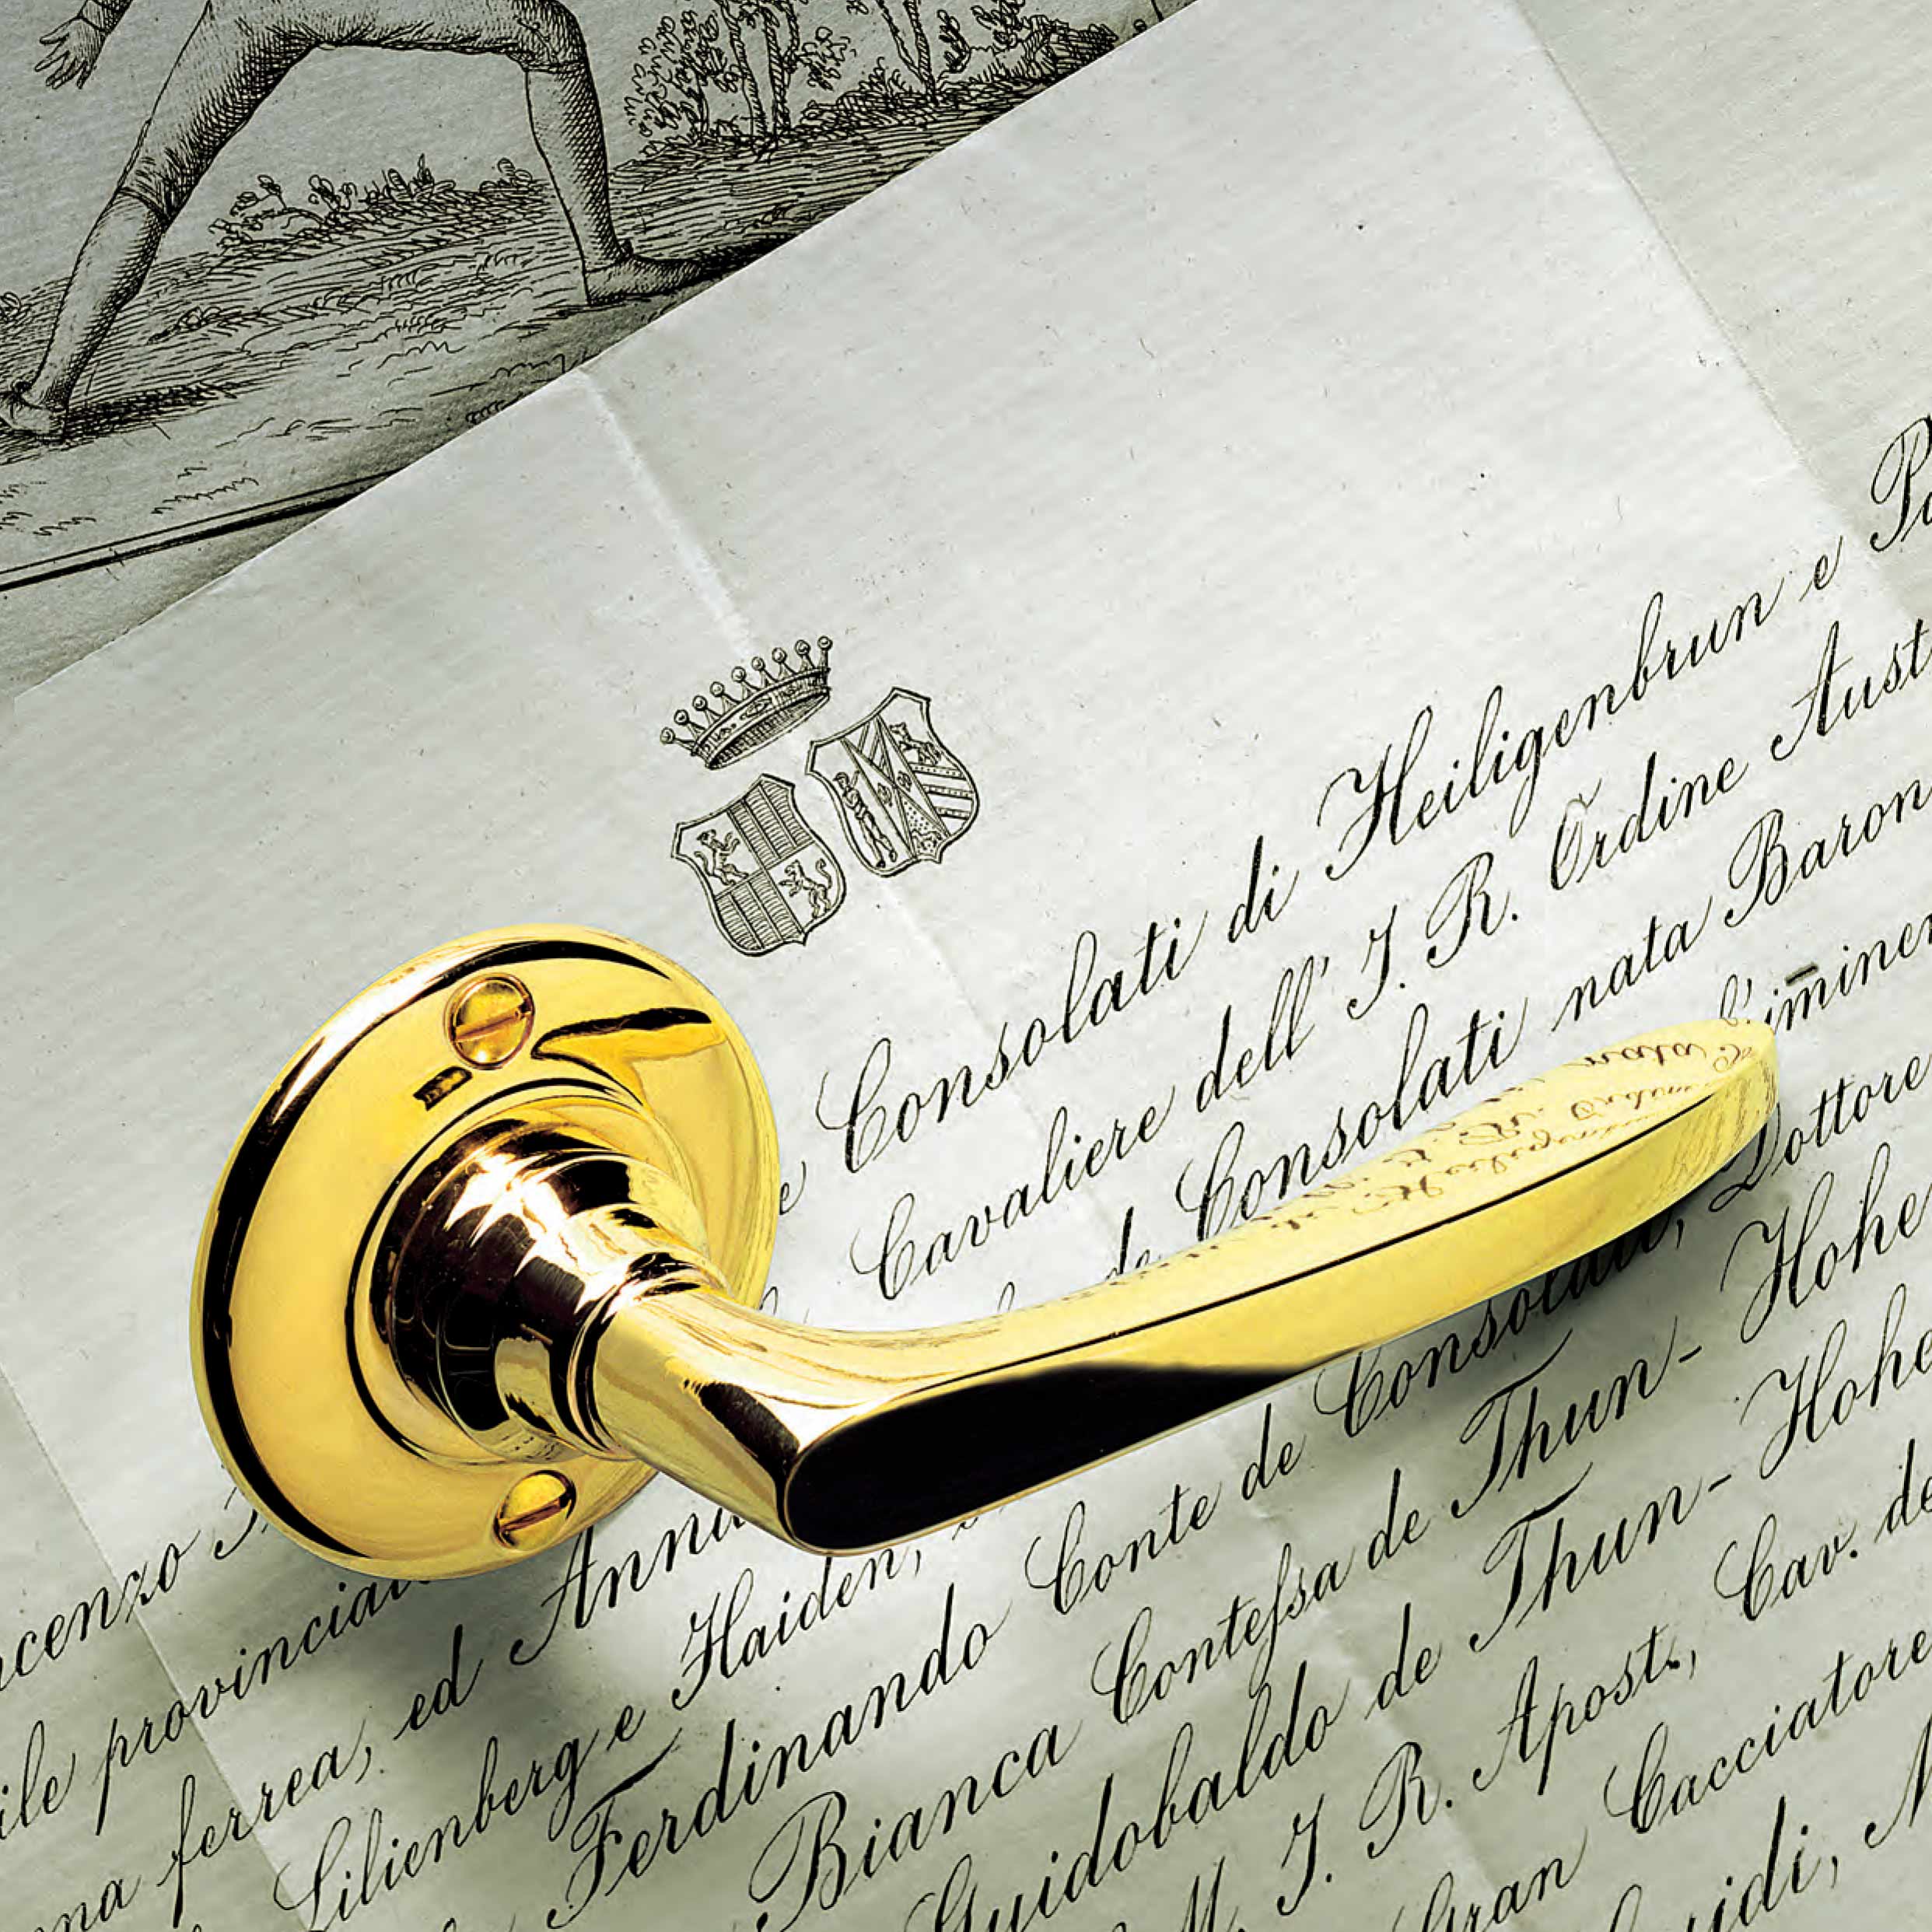 e Consolati di Heiligenbrun e
Cavaliere dell' I. R. Ordine Aust
de Consolati nata Baron
ncenzo l'iminen
ile provinciale Dottore
na ferrea, ed Anna de Thun - Hohe
Lilienberg e Haiden,
Ferdinando Conte de Consolati,
Bianca Contessa de Thun - Hohe
Guidobaldo de Thun - Hohe
M. I. R. Apost., Cav. de
Gran Cacciatore